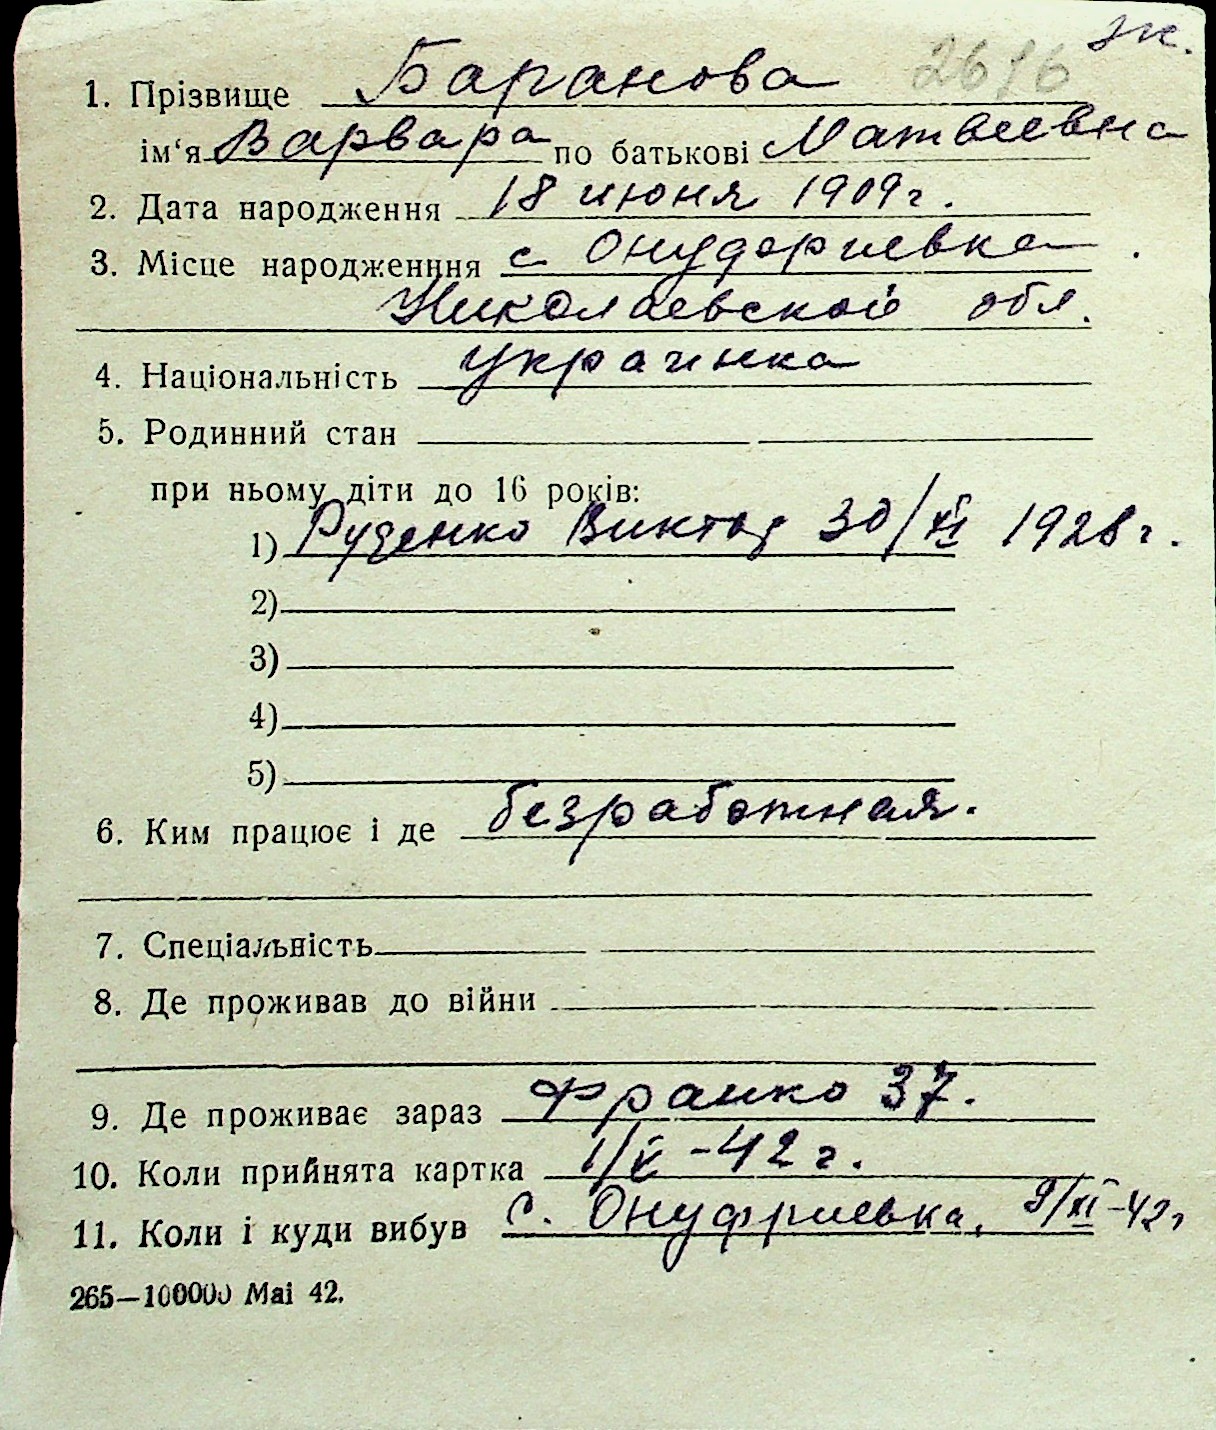 2616 зк.
1. Прізвище Баранова
ім‘я Варвара по батькові Матвеевна
2. Дата народження 18 июня 1909 г.
3. Місце народженння с Онуфриевка
Николаевской обл.
4. Національність украинка
5. Родинний стан
при ньому діти до 16 років:
1) Руденко Виктор 30/XI 1928 г.
2)
3)
4)
5)
6. Ким працює і де безработная.
7. Спеціальність
8. Де проживав до війни
9. Де проживає зараз Франко 37.
10. Коли прийнята картка 1/X -42 г.
11. Коли і куди вибув с. Онуфриевка, 9/XI-42 г
265—100000 Mai 42.